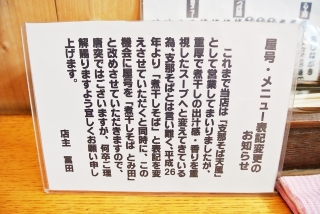 屋号・メニュー表記変更の
お知らせ
これまで当店は「支那そば天風」
として営業してまいりましたが、
重厚で煮干しの出汁感・香りを重
視したスープへと変えてきている
為、支那そばとは言い難く、平成26
年より「煮干しそば」と表記を変
えさせていただくと同時に、この
機会に屋号を「煮干しそば とみ田」
と改めさせていただきますので、
唐突ではございますが、何卒ご理
解賜りますよう宜しくお願い申し
上げます。
店主 冨田